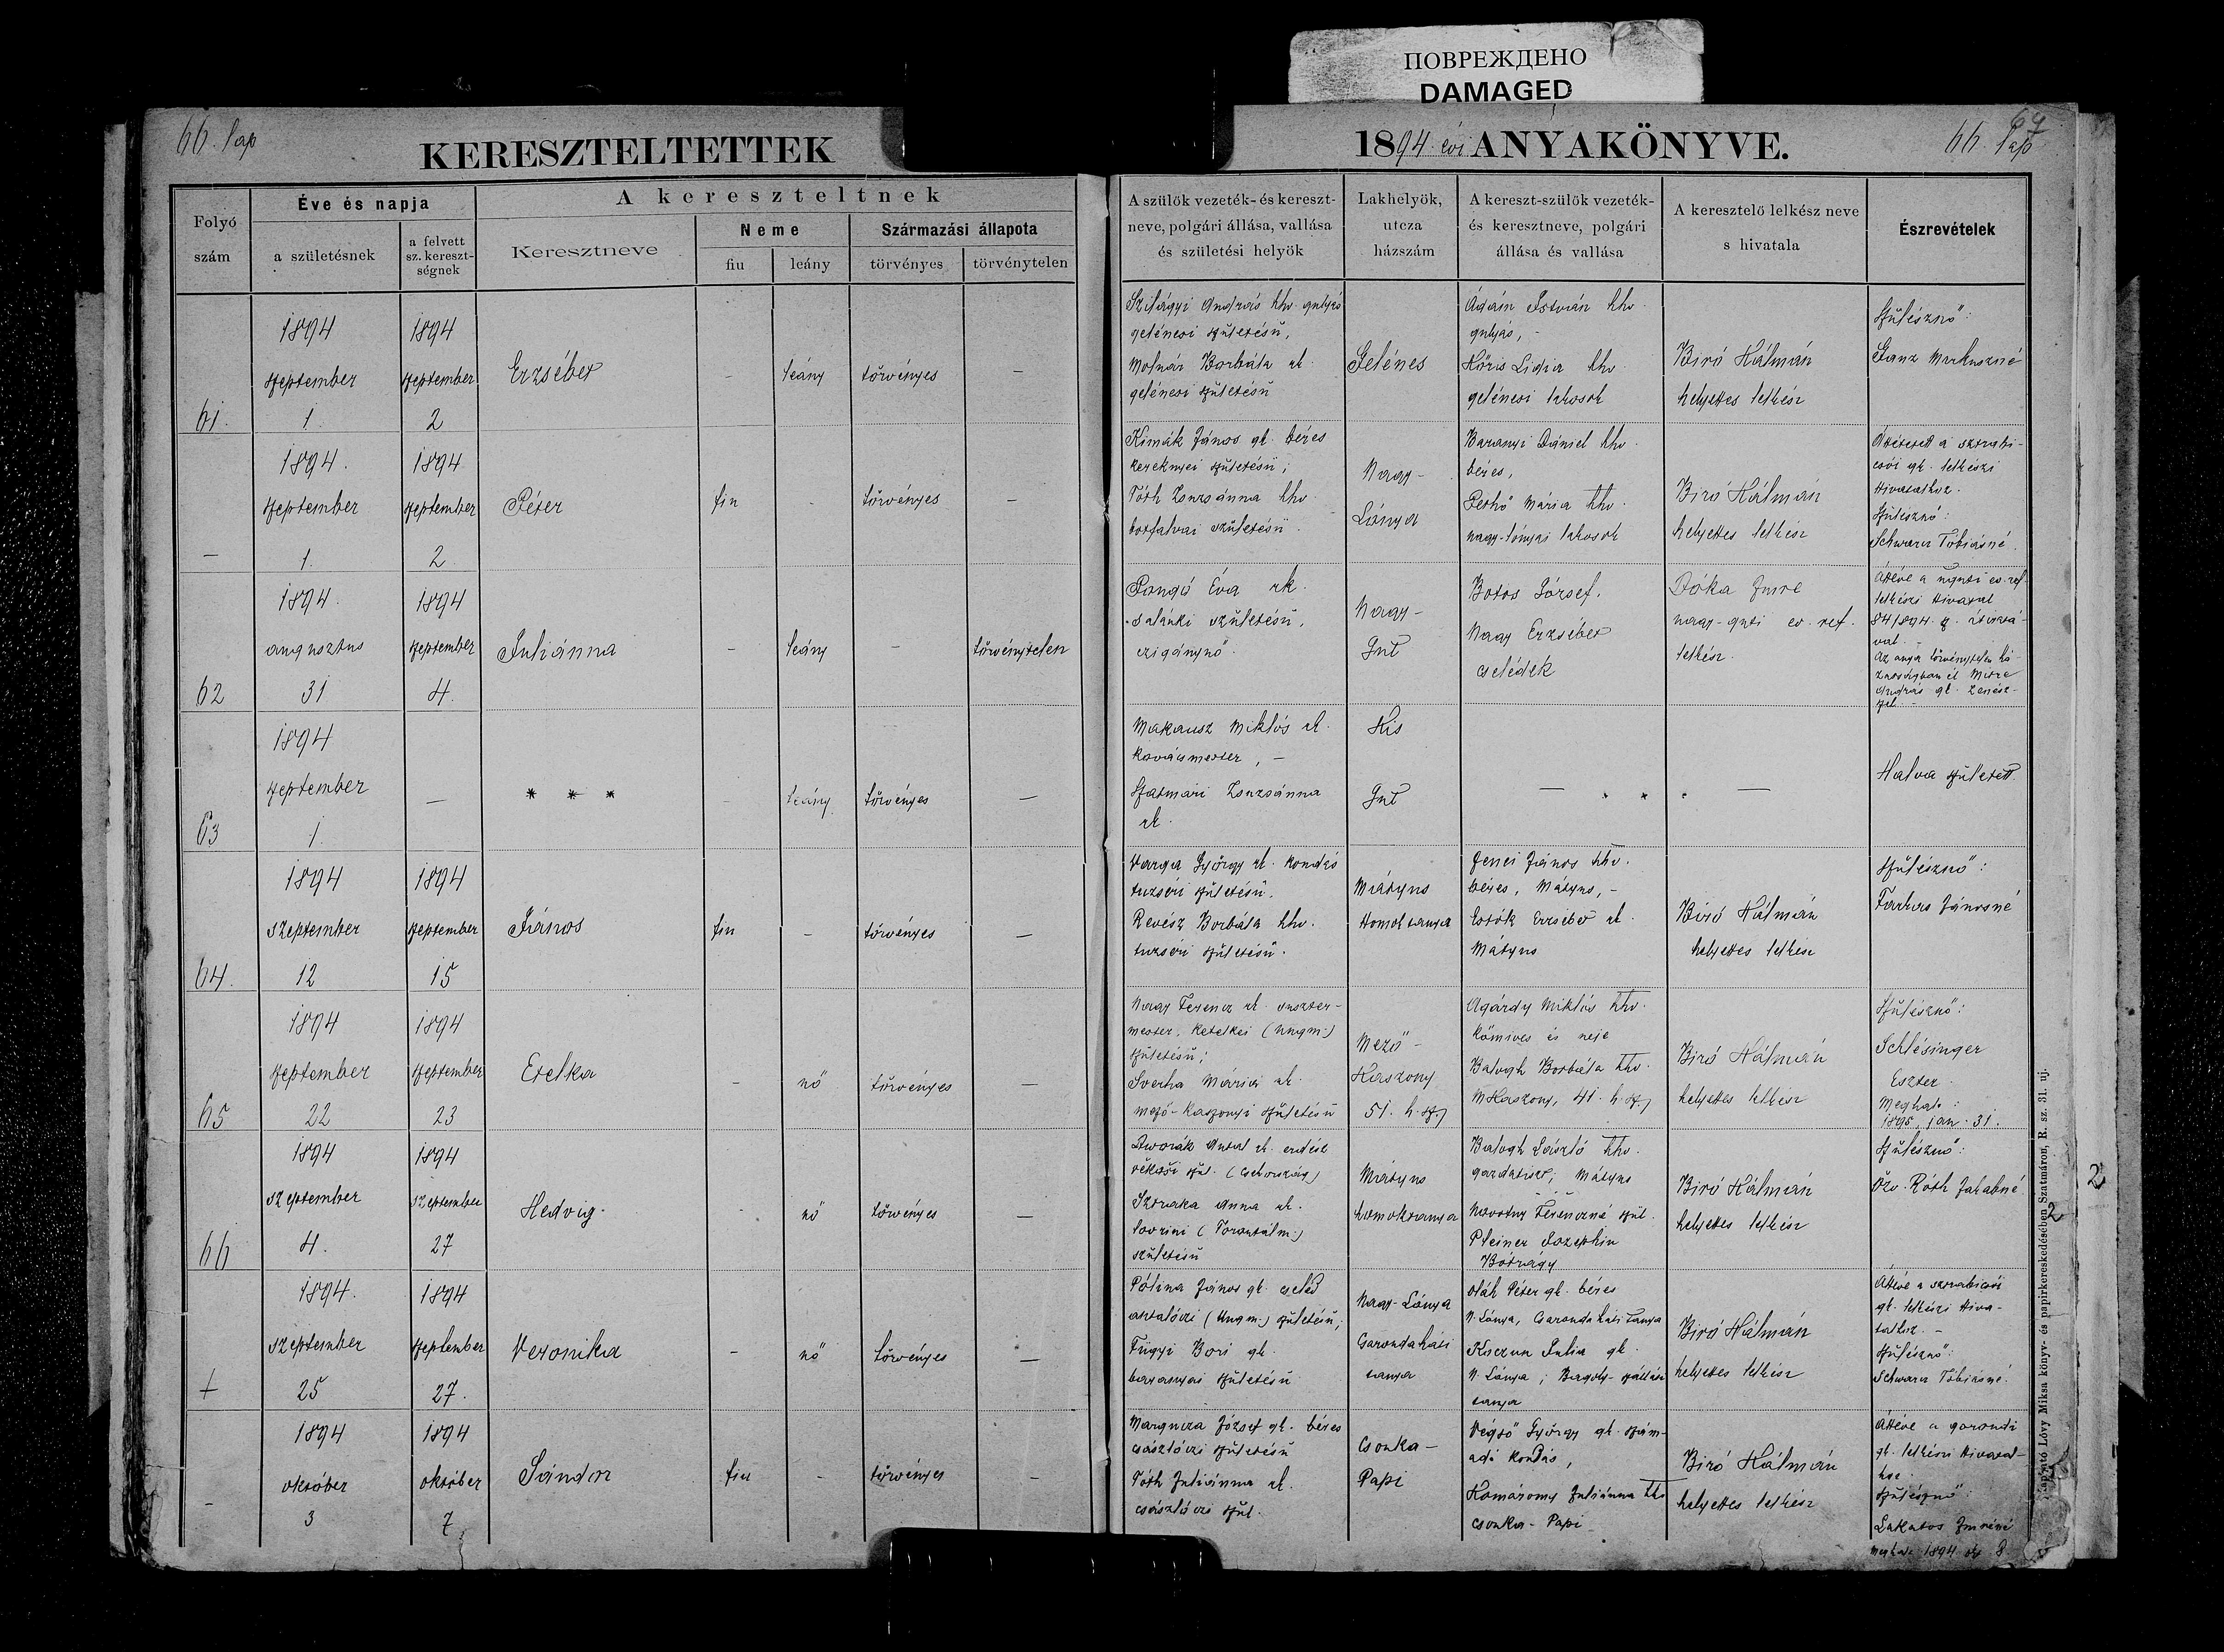 ПОВРЕЖДЕНО
DAMAGED
66. lap
KERESZTELTETTEK
1894 évi ANYAKÖNYVE.
66. lap
67
Folyó
szám
Éve és napja
a születésnek
a felvett
sz. kereszt-
ségnek
A kereszteltnek
Keresztneve
Neme
fiu
leány
Származási állapota
törvényes
törvénytelen
A szülők vezeték- és kereszt-
neve, polgári állása, vallása
és születési helyök
Lakhelyök,
utcza
házszám
A kereszt-szülők vezeték-
és keresztneve, polgári
állása és vallása
A keresztelő lelkész neve
s hivatala
Észrevételek
61.
1894
szeptember
1.
1894
szeptember
2
Erzsébet
-
leány
törvényes
—
Szilágyi András hhv. gulyás
gelénesi születésű,
Molnár Borbála rk.
gelénesi születésű
Gelénes
Ádám István hhv.
gulyás, -
Kőris Lidia hhv.
gelénesi lakosok
Biró Kálmán
helyettes lelkész
Szülésznő:
Ganz Markuszné
—
1894.
szeptember
1.
1894
szeptember
2.
Péter
fiu
-
törvényes
—
Kimák János gk. béres
kereknyei születésű;
Tóth Zsuzsánna hhv.
botfalvai születésű.
Nagy-
Lónya
Baranyi Dániel hhv.
béres,
Pethő Mária hhv.
nagy-lónyai lakosok
Biró Kálmán
helyettes lelkész
Áttétetett a sztrabi-
csói gk. lelkészi
hivatalhoz.
Szülésznő:
Schwarz Tóbiásné.
62
1894.
augusztus
31
1894
szeptember
4.
Juliánna
-
leány
-
törvénytelen
Pongó Éva rk.
salánki születésű,
czigánynő.
Nagy-
Gut
Botos József.
Nagy Erzsébet
cselédek
Dóka Imre
nagy-guti ev. ref.
lelkész.
Áttéve a nguti ev. ref.
lelkészi hivatal
84/1894. sz. átiratá-
val. -
Az anya törvénytelen há-
zasságban él Mitre
András gk. zenész-
szel. -
63
1894
szeptember
1.
—
* * *
-
leány
törvényes
—
Makausz Miklós rk.
kovácsmester, -
Szatmári Zsuzsánna
rk.
Kis
Gut
— . . . —
Halva született.
64.
1894
szeptember
12
1894
szeptember
15
János
fiu
-
törvényes
—
Varga György rk. kondás
tuzséri születésű.
Révész Borbála hhv.
tuzséri születésű.
Mátyus
Homoktanya
Jenei János hhv.
béres, Mátyus, -
Estók Erzsébet rk.
Mátyus
Biró Kálmán
helyettes lelkész
Szülésznő:
Farkas Jánosné
65
1894
szeptember
22
1894
szeptember
23
Etelka
-
nő
törvényes
—
Nagy Ferencz rk. suszter-
mester, ketelkei (Ungm.)
születésű;
Sverha Mária rk.
mező-kaszonyi születésű
Mező-
Kaszony
51. h. sz.
Agárdy Miklós hhv.
kőmives és neje
Balogh Borbála hhv.
MKaszony, 41. h. sz.
Biró Kálmán
helyettes lelkész
Szülésznő:
Schlésinger
Eszter.
Meghalt:
1895. jan. 31.
66
1894
szeptember
4.
1894
szeptember
27
Hedvig.
-
nő
törvényes
—
Dworák Antal rk. erdész
(Csehország)
Sztraka Anna rk.
(Torontálm.)
születésű
Mátyus
homoktanya
Balogh László hhv.
gazdatiszt; Mátyus
Novotny Ferenczné szül.
Pleiner Jozephin
Bótrágy
Biró Kálmán
helyettes lelkész
Szülésznő:
Özv. Róth Jakabné
+
1894.
szeptember
25
1894
szeptember
27.
Veronika
-
nő
törvényes
—
Pólina János gk. cseléd
antalóczi (Ungm.) születésű;
Fügyi Bori gk.
baranyai születésű
Nagy-Lónya
Csarondaháti
tanya
Oláh Péter gk. béres
N. Lónya, Csarondaháti tanya
Kuczun Julia gk.
N. Lónya; Bagoly-szállás
tanya
Biró Kálmán
helyettes lelkész
Áttéve a sztrabicsói
gk. lelkészi hiva-
talhoz. -
Szülésznő:
Schwarz Tóbiásné.
-
1894
október
3
1894
október
7
Sándor
fiu
-
törvényes
-
Margucza József gk. béres
császlóczi születésű
Tóth Juliánna rk.
császlóczi szül.
Csonka-
Papi
Végső György gk. szám-
adó kondás,
Komáromy Juliánna hhv
Csonka-Papi
Biró Kálmán
helyettes lelkész
Áttéve a gorondi
gk. lelkészi hivatal-
hoz.
Szülésznő:
Lakatos Imréné
Meghalt 1894 8
Kapható Lővy Miksa könyv- és papirkereskedésében Szatmáron, R. sz. 31. uj.
2
2
2